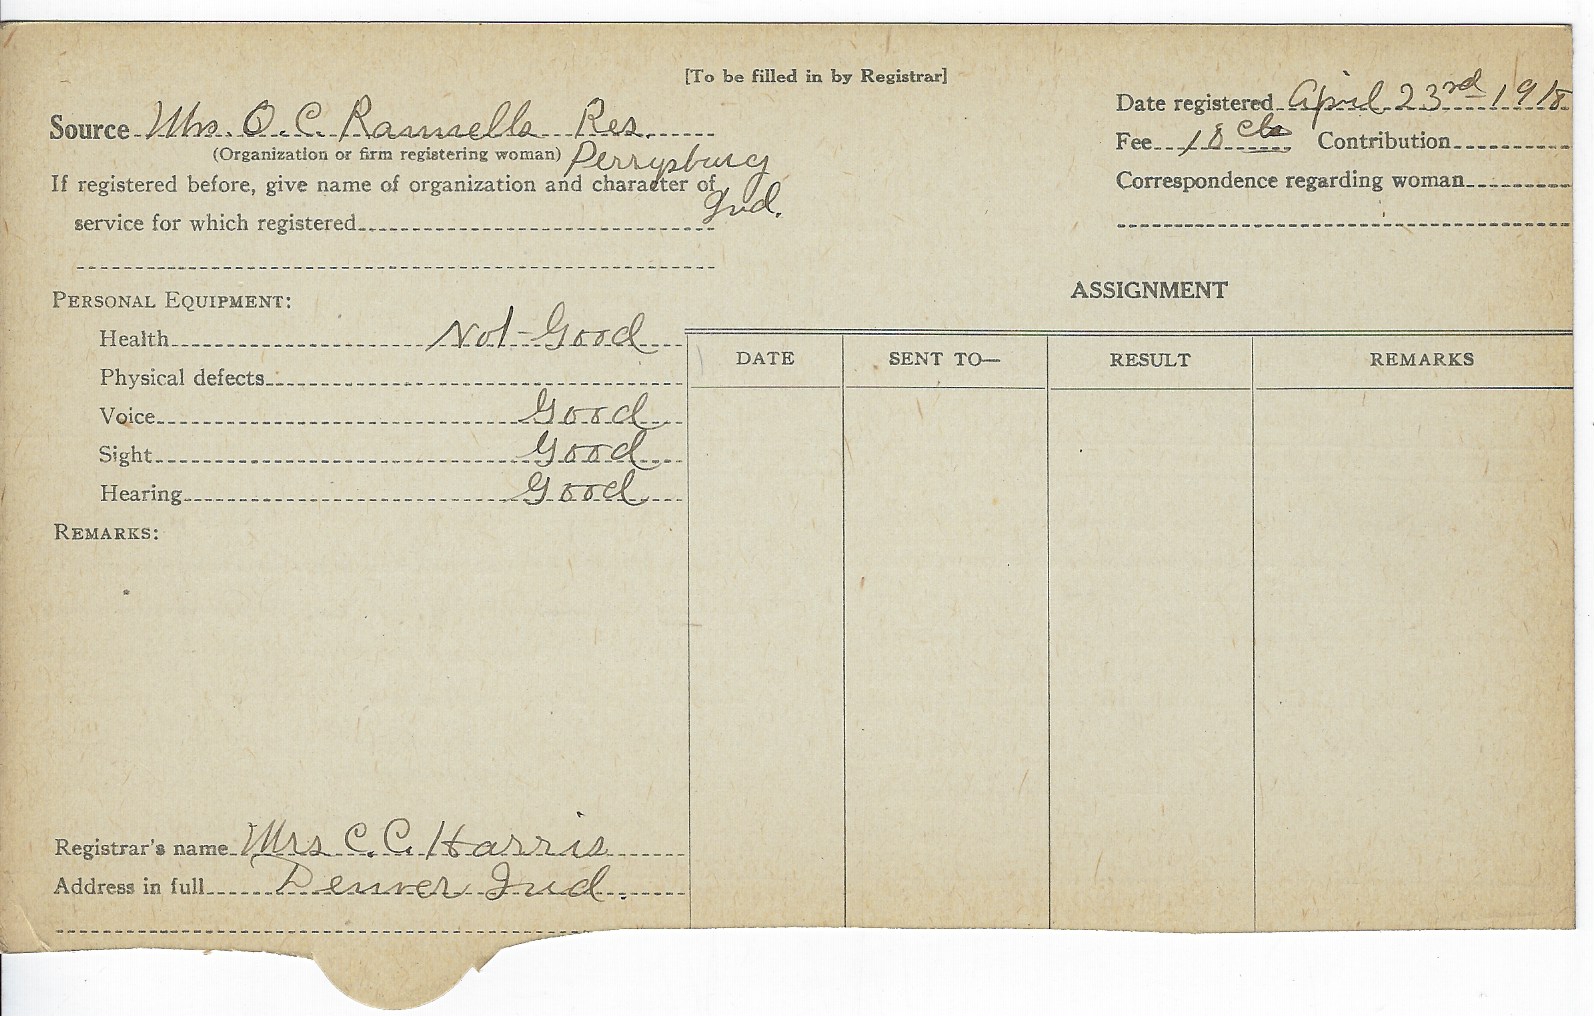 [To be filled in by Registrar]
Source Mrs. O. C. Ramsells Res.
(Organization or firm registering woman) Perrysburg
Ind.
If registered before, give name of organization and character of
service for which registered
Date registered April 23rd 1918
Fee 18 cts Contribution
Correspondence regarding woman
PERSONAL EQUIPMENT:
Health Not-Good
Physical defects
Voice Good
Sight Good
Hearing Good
REMARKS:
Registrar's name Mrs C. C. Harris
Address in full Denver Ind.
ASSIGNMENT
DATE SENT TO— RESULT REMARKS